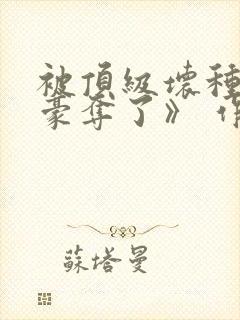 被頂級壞種
豪奪了》 作
蘇塔曼